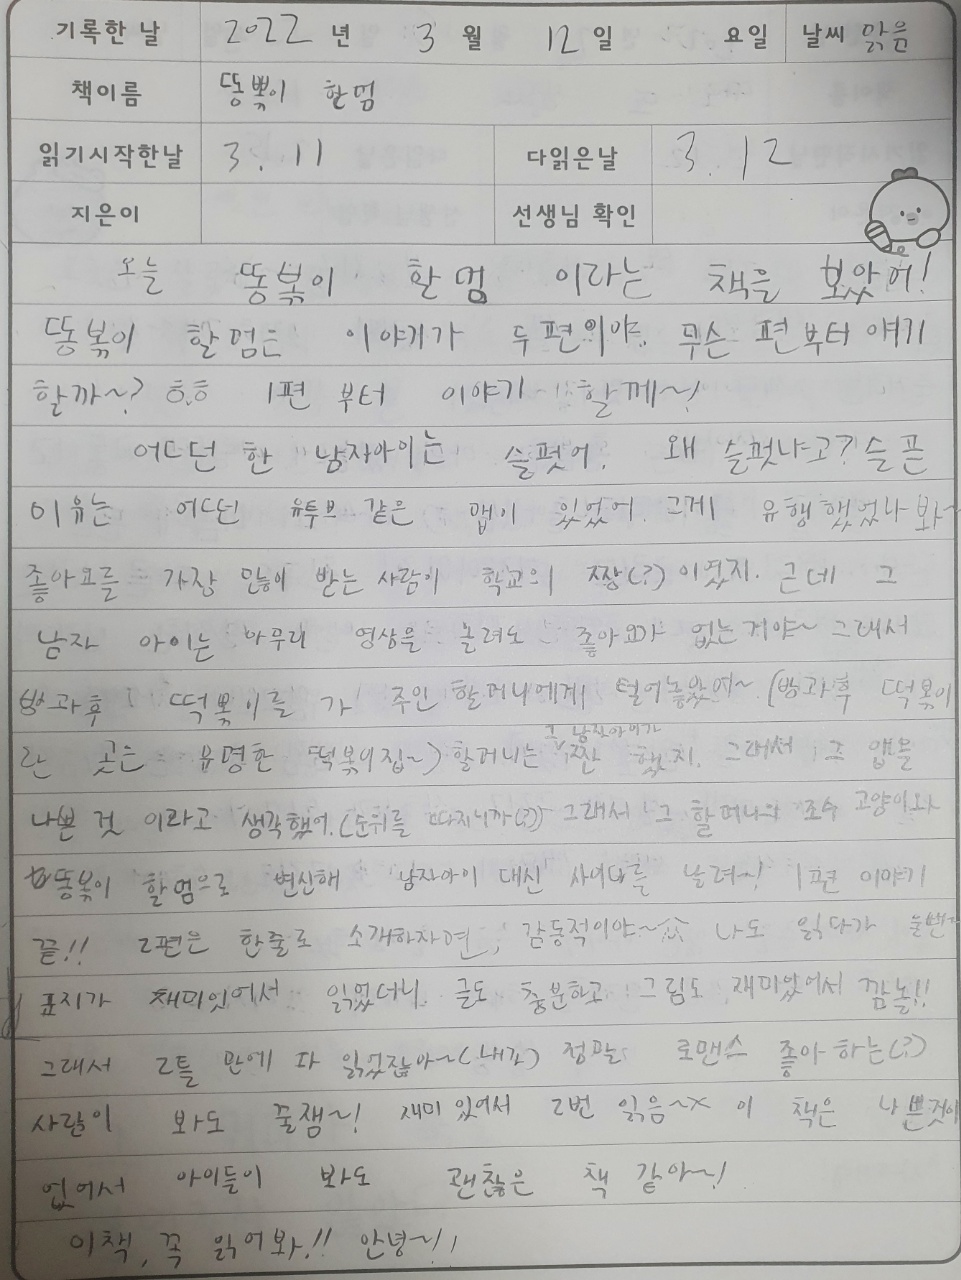 기록한 날 2022 년 3 월 12 일 요일 날씨 맑음
책이름 똥볶이 할멈
읽기시작한날 3. 11 다읽은날 3. 12
지은이 선생님 확인
오늘 똥볶이 할멈 이라는 책을 보았어!
똥볶이 할멈은 이야기가 두편의야. 무슨 편부터 얘기
할까~? ㅎ.ㅎ 1편 부터 이야기 할께~!
어느던 한 남자아이는 슬펏어. 왜 슬펏냐고? 슬픈
이유는 어느던 유투브 같은 앱이 있었어. 그게 유행했었나 봐~
좋아요를 가장 많이 받는 사람이 학교의 짱(?) 이였지. 근데 그
남자 아이는 아무리 영상을 올려도 좋아요가 없는거야~ 그래서
방과후 떡볶이를 가 주인 할머니에게 털어놓았어~ (방과후 떡볶이
란 곳은 유명한 떡볶이집~) 할머니는 그 남자아이가 짠 했지. 그래서 그 앱을
나쁜 것 이라고 생각했어. (순위를 따지니까(?)) 그래서 그 할머니와 조수 고양이와
똥볶이 할멈으로 변신해 남자아이 대신 사이다를 날려~! 1편 이야기
끝!! 2편은 한줄로 소개하자면, 감동적이야~ 나도 읽다가 눈뻔
표지가 재미잇어서 읽었더니 글도 충분하고 그림도 재미있어서 깜놀!!
그래서 2틀 만에 다 읽었잖아~(내가) 정말 로맨스 좋아하는(?)
사람이 봐도 꿀잼~! 재미있어서 2번 읽음~x 이 책은 나쁜것이
없어서 아이들이 봐도 괜찮은 책 같아~!
이책, 꼭 읽어봐!! 안녕~!!